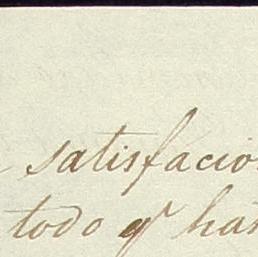 satisfacio
todo qᵉ has